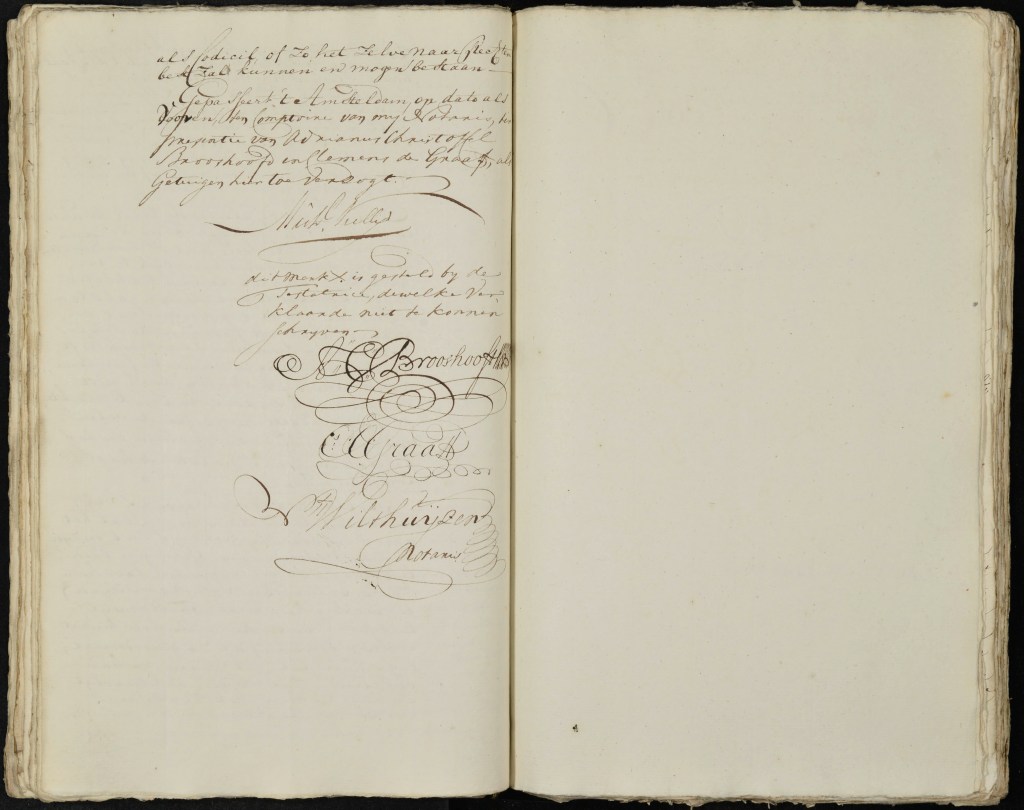 als Codicil, of zo het zelve naar Rechten
best zal kunnen en mogen bestaan
Gepasseert, te Amsteldam, op dato als
vooren, ten Comptoire van my Notaris, ter
presentie van Adrianus Christoffel
Brooshoofd en Clemens de Graaff, als
Getuigen hier toe verzogt.
Mich:
dit merk X is gesteld by de
Testatrice, dewelke ver
klaarde niet te konnen
schryven
A: C: Brooshooft
C: d'Graaff
Wilthuyzen
Notaris